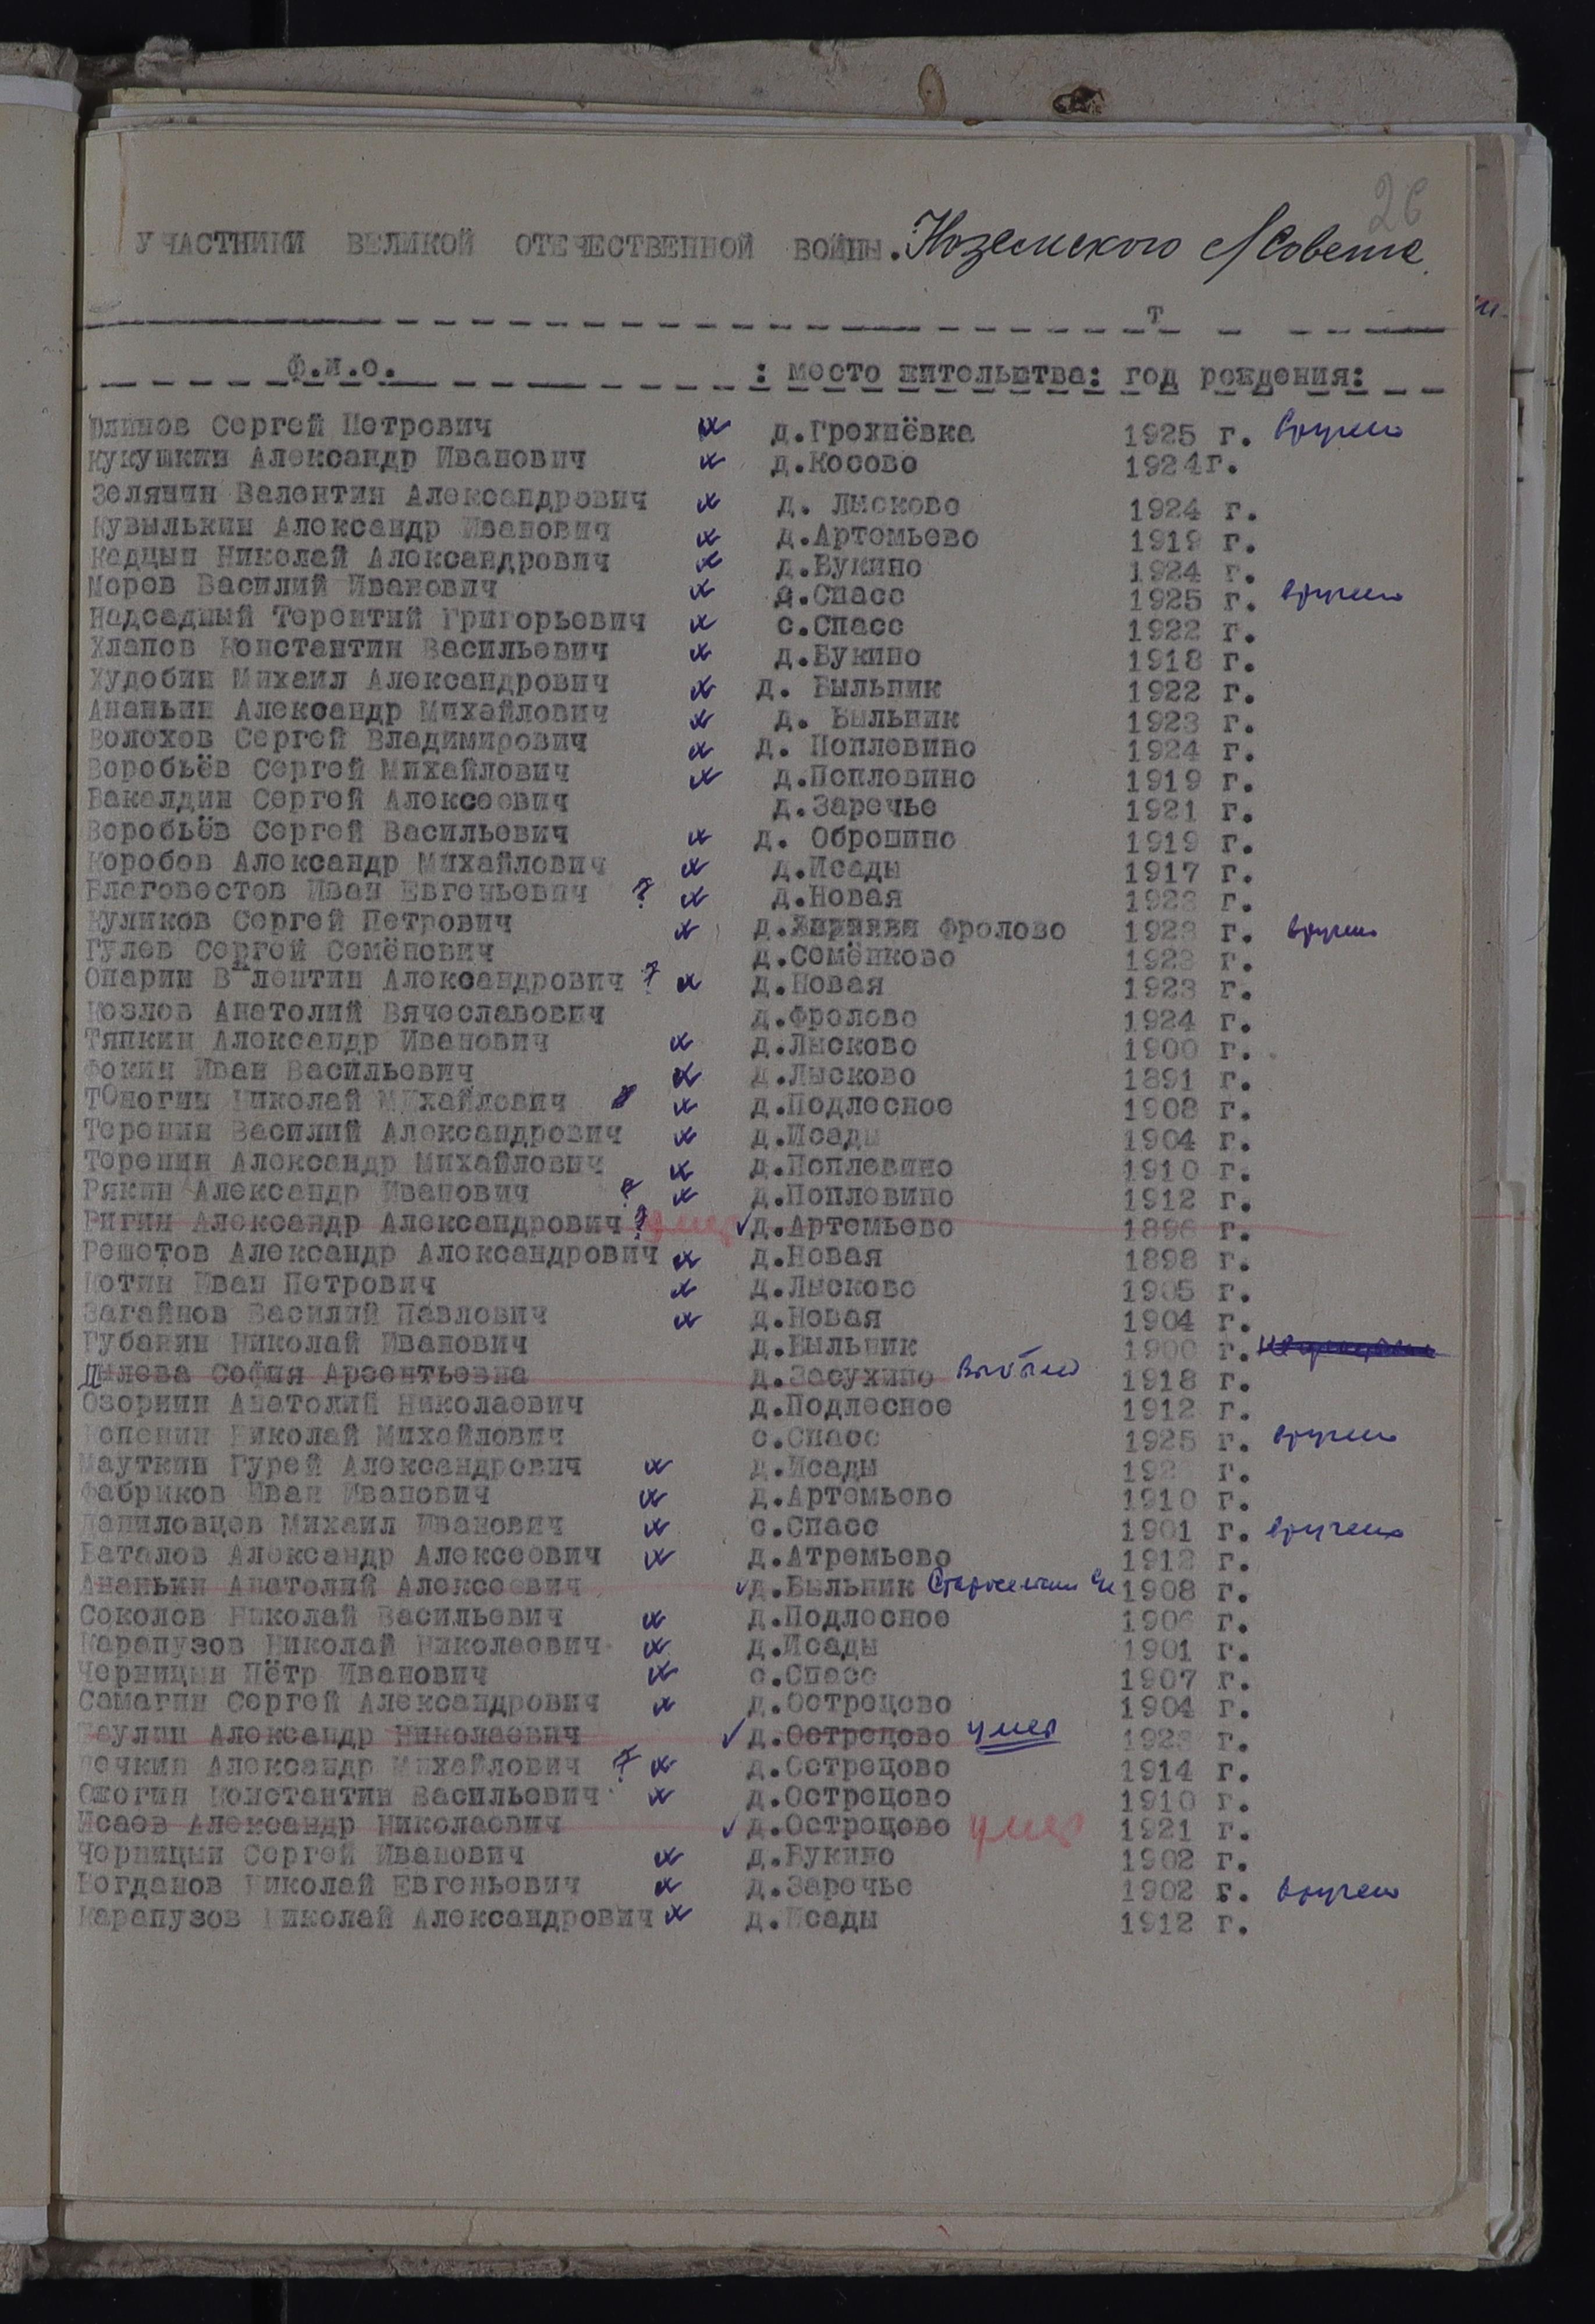 26
УЧАСТНИКИ ВЕЛИКОЙ ОТЕЧЕСТВЕННОЙ ВОЙНЫ. Ноземского с/Совета.
Т
Ф.И.О. : место жительства: год рождения:
Юлинов Сергей Петрович д.Грехнёвка 1925 г. вручено
Кукушкин Александр Иванович д.Косово 1924г.
Зелянин Валентин Александрович д. Лысково 1924 г.
Кувылькин Александр Иванович д.Артемьево 1919 г.
Кадцын Николай Александрович д.Букино 1924 г.
Моров Василий Иванович д.Спасс 1925 г. вручено
Надсадный Терентий Григорьевич с.Спасс 1922 г.
Хлапов Константин Васильевич д.Букино 1918 г.
Худобин Михаил Александрович д. Быльник 1922 г.
Ананьин Александр Михайлович д. Быльник 1923 г.
Волохов Сергей Владимирович д. Поплевино 1924 г.
Воробьёв Сергей Михайлович д.Поплевино 1919 г.
Бакалдин Сергей Алексеевич д.Заречье 1921 г.
Воробьёв Сергей Васильевич д. Оброшино 1919 г.
Коробов Александр Михайлович д.Исады 1917 г.
Благовестов Иван Евгеньевич ? д.Новая 1923 г.
Куликов Сергей Петрович д. Фролово 1923 г. вручено
Гулев Сергей Семёнович д.Семёнково 1923 г.
Опарин Валентин Александрович ? д.Новая 1923 г.
Козлов Анатолий Вячеславович д.Фролово 1924 г.
Тяпкин Александр Иванович д.Лысково 1900 г.
Фокин Иван Васильевич д.Лысково 1891 г.
Тоногин Николай Михайлович д.Подлесное 1908 г.
Теренин Василий Александрович д.Исады 1904 г.
Теренин Александр Михайлович д.Поплевино 1910 г.
Рякин Александр Иванович ? д.Поплевино 1912 г.
Ригин Александр Александрович ? умер д.Артемьево 1896 г.
Решетов Александр Александрович д.Новая 1898 г.
Котин Иван Петрович д.Лысково 1905 г.
Загайнов Василий Павлович д.Новая 1904 г.
Губанин Николай Иванович д.Быльник 1900 г.
Дылева София Арсентьевна д.Засухино выбыла 1918 г.
Озорнин Анатолий Николаевич д.Подлесное 1912 г.
Копенин Николай Михайлович с.Спасс 1925 г. вручено
Мауткин Гурей Александрович д.Исады 192 г.
Фабриков Иван Иванович д.Артемьево 1910 г.
Даниловцев Михаил Иванович с.Спасс 1901 г. вручено
Баталов Александр Алексеевич д.Атремьево 1912 г.
Ананьин Анатолий Алексеевич д.Быльник 1908 г.
Соколов Николай Васильевич д.Подлесное 1906 г.
Карапузов Николай Николаевич д.Исады 1901 г.
Черницын Пётр Иванович с.Спасс 1907 г.
Самагин Сергей Александрович д.Острецово 1904 г.
Александр Николаевич д.Острецово умер 1923 г.
Александр Михайлович ? д.Острецово 1914 г.
Ожогин Константин Васильевич д.Острецово 1910 г.
Исаев Александр Николаевич д.Острецово умер 1921 г.
Черницын Сергей Иванович д.Букино 1902 г.
Богданов Николай Евгеньевич д.Заречье 1902 г. вручено
Карапузов Николай Александрович д.Исады 1912 г.